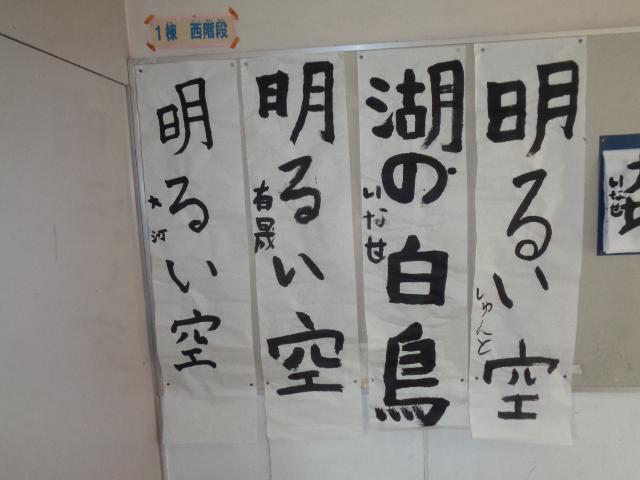 1棟 西階段
明るい空
しゅんと
湖の白鳥
いなせ
明るい空
有晟
明るい空
大河
いなせ